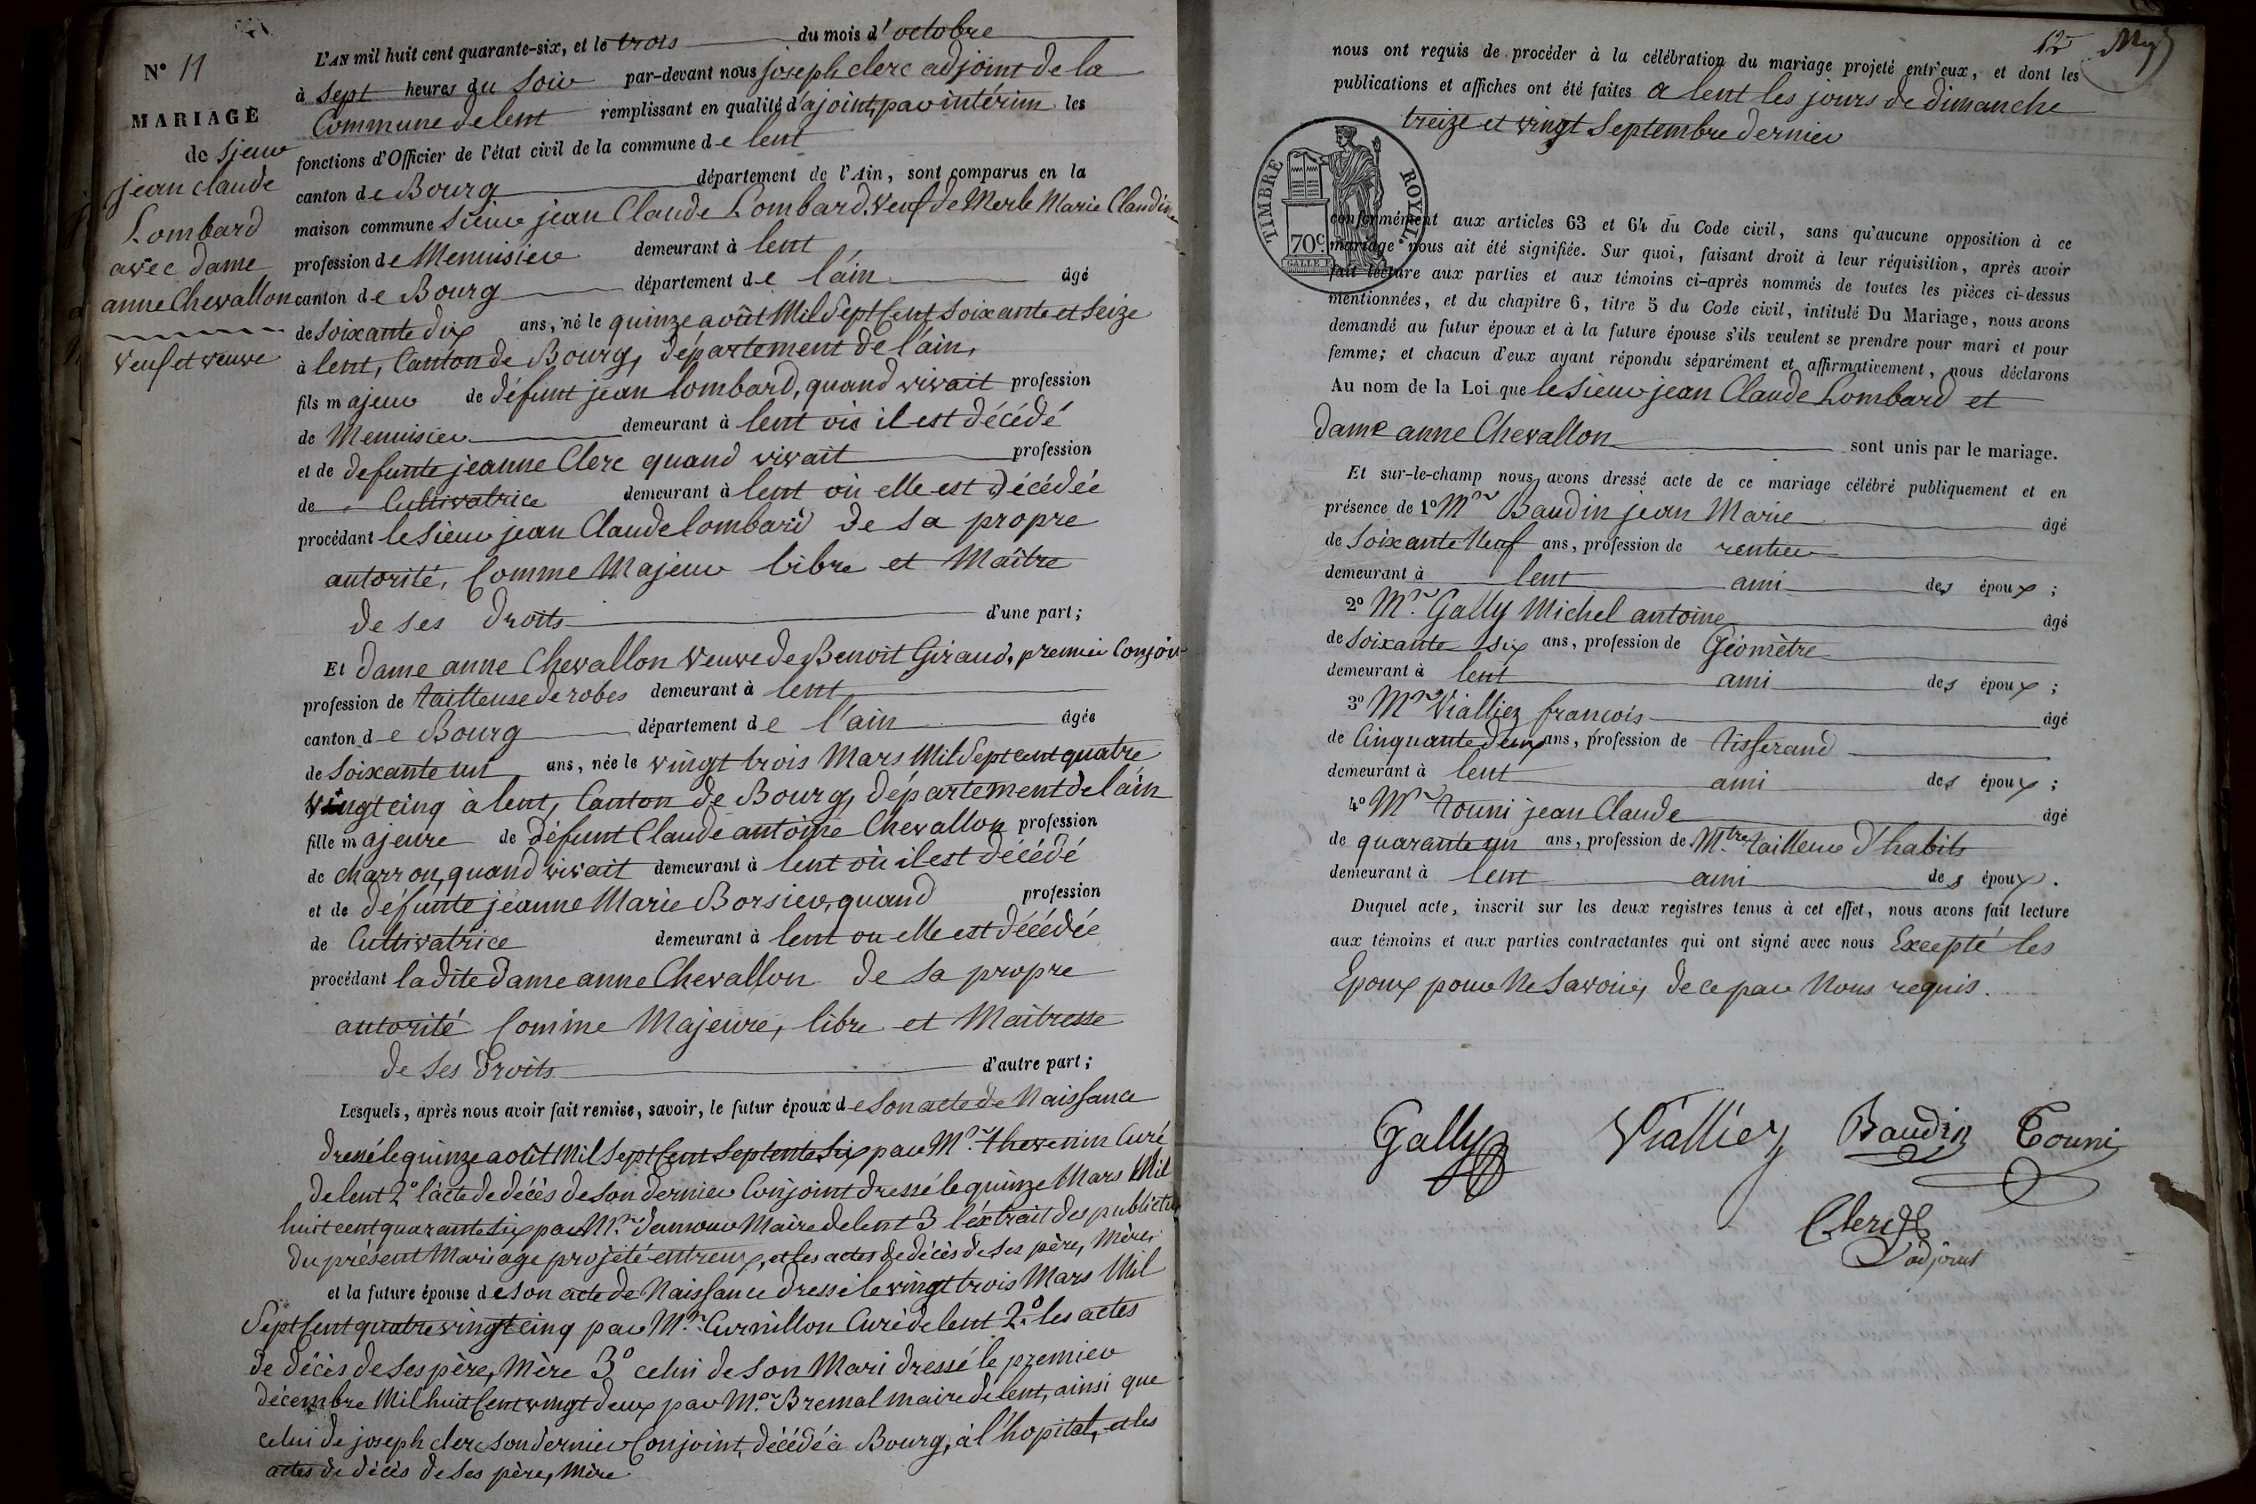 N° 11
MARIAGE
de sieur
jean claude
Lombard
avec dame
anne Chevallon
veuf et veuve
L'AN mil huit cent quarante-six, et le trois du mois d'octobre
à sept heures du soir par-devant nous joseph clerc adjoint de la
Commune de lent remplissant en qualité d'ajoint, par intérim les
fonctions d'Officier de l'état civil de la commune de lent
canton de Bourg département de l'Ain, sont comparus en la
maison commune sieur jean Claude Lombard, veuf de Merle Marie Claudine
profession de Menuisier demeurant à lent
canton de Bourg département de l'ain âgé
de soixante dix ans, né le quinze août Mil Sept Cent soixante et seize
à lent, Canton de Bourg, département de l'ain,
fils majeur de défunt jean lombard, quand vivait profession
de Menuisier demeurant à lent ou il est décédé
et de defunte jeanne Clerc quand vivait profession
de Cultivatrice demeurant à lent où elle est décédée
procédant le sieur jean Claude lombard de sa propre
autorité, Comme Majeur libre et Maître
de ses droits d'une part;
Et dame anne Chevallon veuve de Benoit Giraud, premier Conjoin
profession de tailleuse de robes demeurant à lent
canton de Bourg département de l'ain âgée
de soixante un ans, née le vingt trois Mars Mil Sept cent quatre
vingt cinq à lent, Canton de Bourg, département de l'ain
fille majeure de défunt Claude antoine Chevallon profession
de charron, quand vivait demeurant à lent où il est décédé
et de défunte jeanne Marie Borsieur, quand profession
de Cultivatrice demeurant à lent ou elle est décédée
procédant la dite dame anne Chevallon de sa propre
autorité Comme Majeure, libre et Maîtresse
de ses droits d'autre part;
Lesquels, après nous avoir fait remise, savoir, le futur époux de son acte de Naissance
dressé le quinze août Mil Sept Cent Septente Six par Mr. Thevenin Curé
de lent 2° l'acte de décès de son dernier Conjoint dressé le quinze Mars Mil
huit cent quarante six par Mr. Maire de lent 3 l'éxtrait des publictio
du présent Mariage projeté entreux, et les actes de décès de ses père, Mère
et la future épouse de son acte de Naissance dressé le vingt trois Mars Mil
Sept Cent quatre vingt cinq par Mr. Curnillon Curé de lent 2° les actes
de décès de ses père, Mère 3° celui de son Mari dressé le premier
décembre Mil huit Cent vingt deux par Mr. Bremal maire de lent, ainsi que
celui de joseph clerc son dernier Conjoint, décédé à Bourg, à l'hopital, et les
actes de décès de ses père, Mère
12
nous ont requis de procéder à la célébration du mariage projeté entr'eux, et dont les
publications et affiches ont été faites a lent les jours de dimanche
treize et vingt Septembre dernier
TIMBRE ROYAL.
70c.
conformément aux articles 63 et 64 du Code civil, sans qu'aucune opposition à ce
mariage nous ait été signifiée. Sur quoi, faisant droit à leur réquisition, après avoir
fait lecture aux parties et aux témoins ci-après nommés de toutes les pièces ci-dessus
mentionnées, et du chapitre 6, titre 5 du Code civil, intitulé Du Mariage, nous avons
demandé au futur époux et à la future épouse s'ils veulent se prendre pour mari et pour
femme; et chacun d'eux ayant répondu séparément et affirmativement, nous déclarons
Au nom de la Loi que le sieur jean Claude Lombard et
dame anne Chevallon sont unis par le mariage.
Et sur-le-champ nous avons dressé acte de ce mariage célébré publiquement et en
présence de 1° Mr Baudin jean Marie âgé
de Soixante Neuf ans, profession de rentier
demeurant à lent ami des époux;
2° Mr. Gally Michel antoine âgé
de soixante six ans, profession de Géomètre
demeurant à lent ami des époux;
3° Mr Vialliez francois âgé
de Cinquante deux ans, profession de tisserand
demeurant à lent ami des époux;
4° Mr touni jean Claude âgé
de quarante un ans, profession de Mtre tailleur d'habits
demeurant à lent ami des époux.
Duquel acte, inscrit sur les deux registres tenus à cet effet, nous avons fait lecture
aux témoins et aux parties contractantes qui ont signé avec nous Excepté les
Epoux pour Ne Savoir, de ce par Nous requis.
Gally Vialliez Baudin Touni
Clerc
L'adjoint